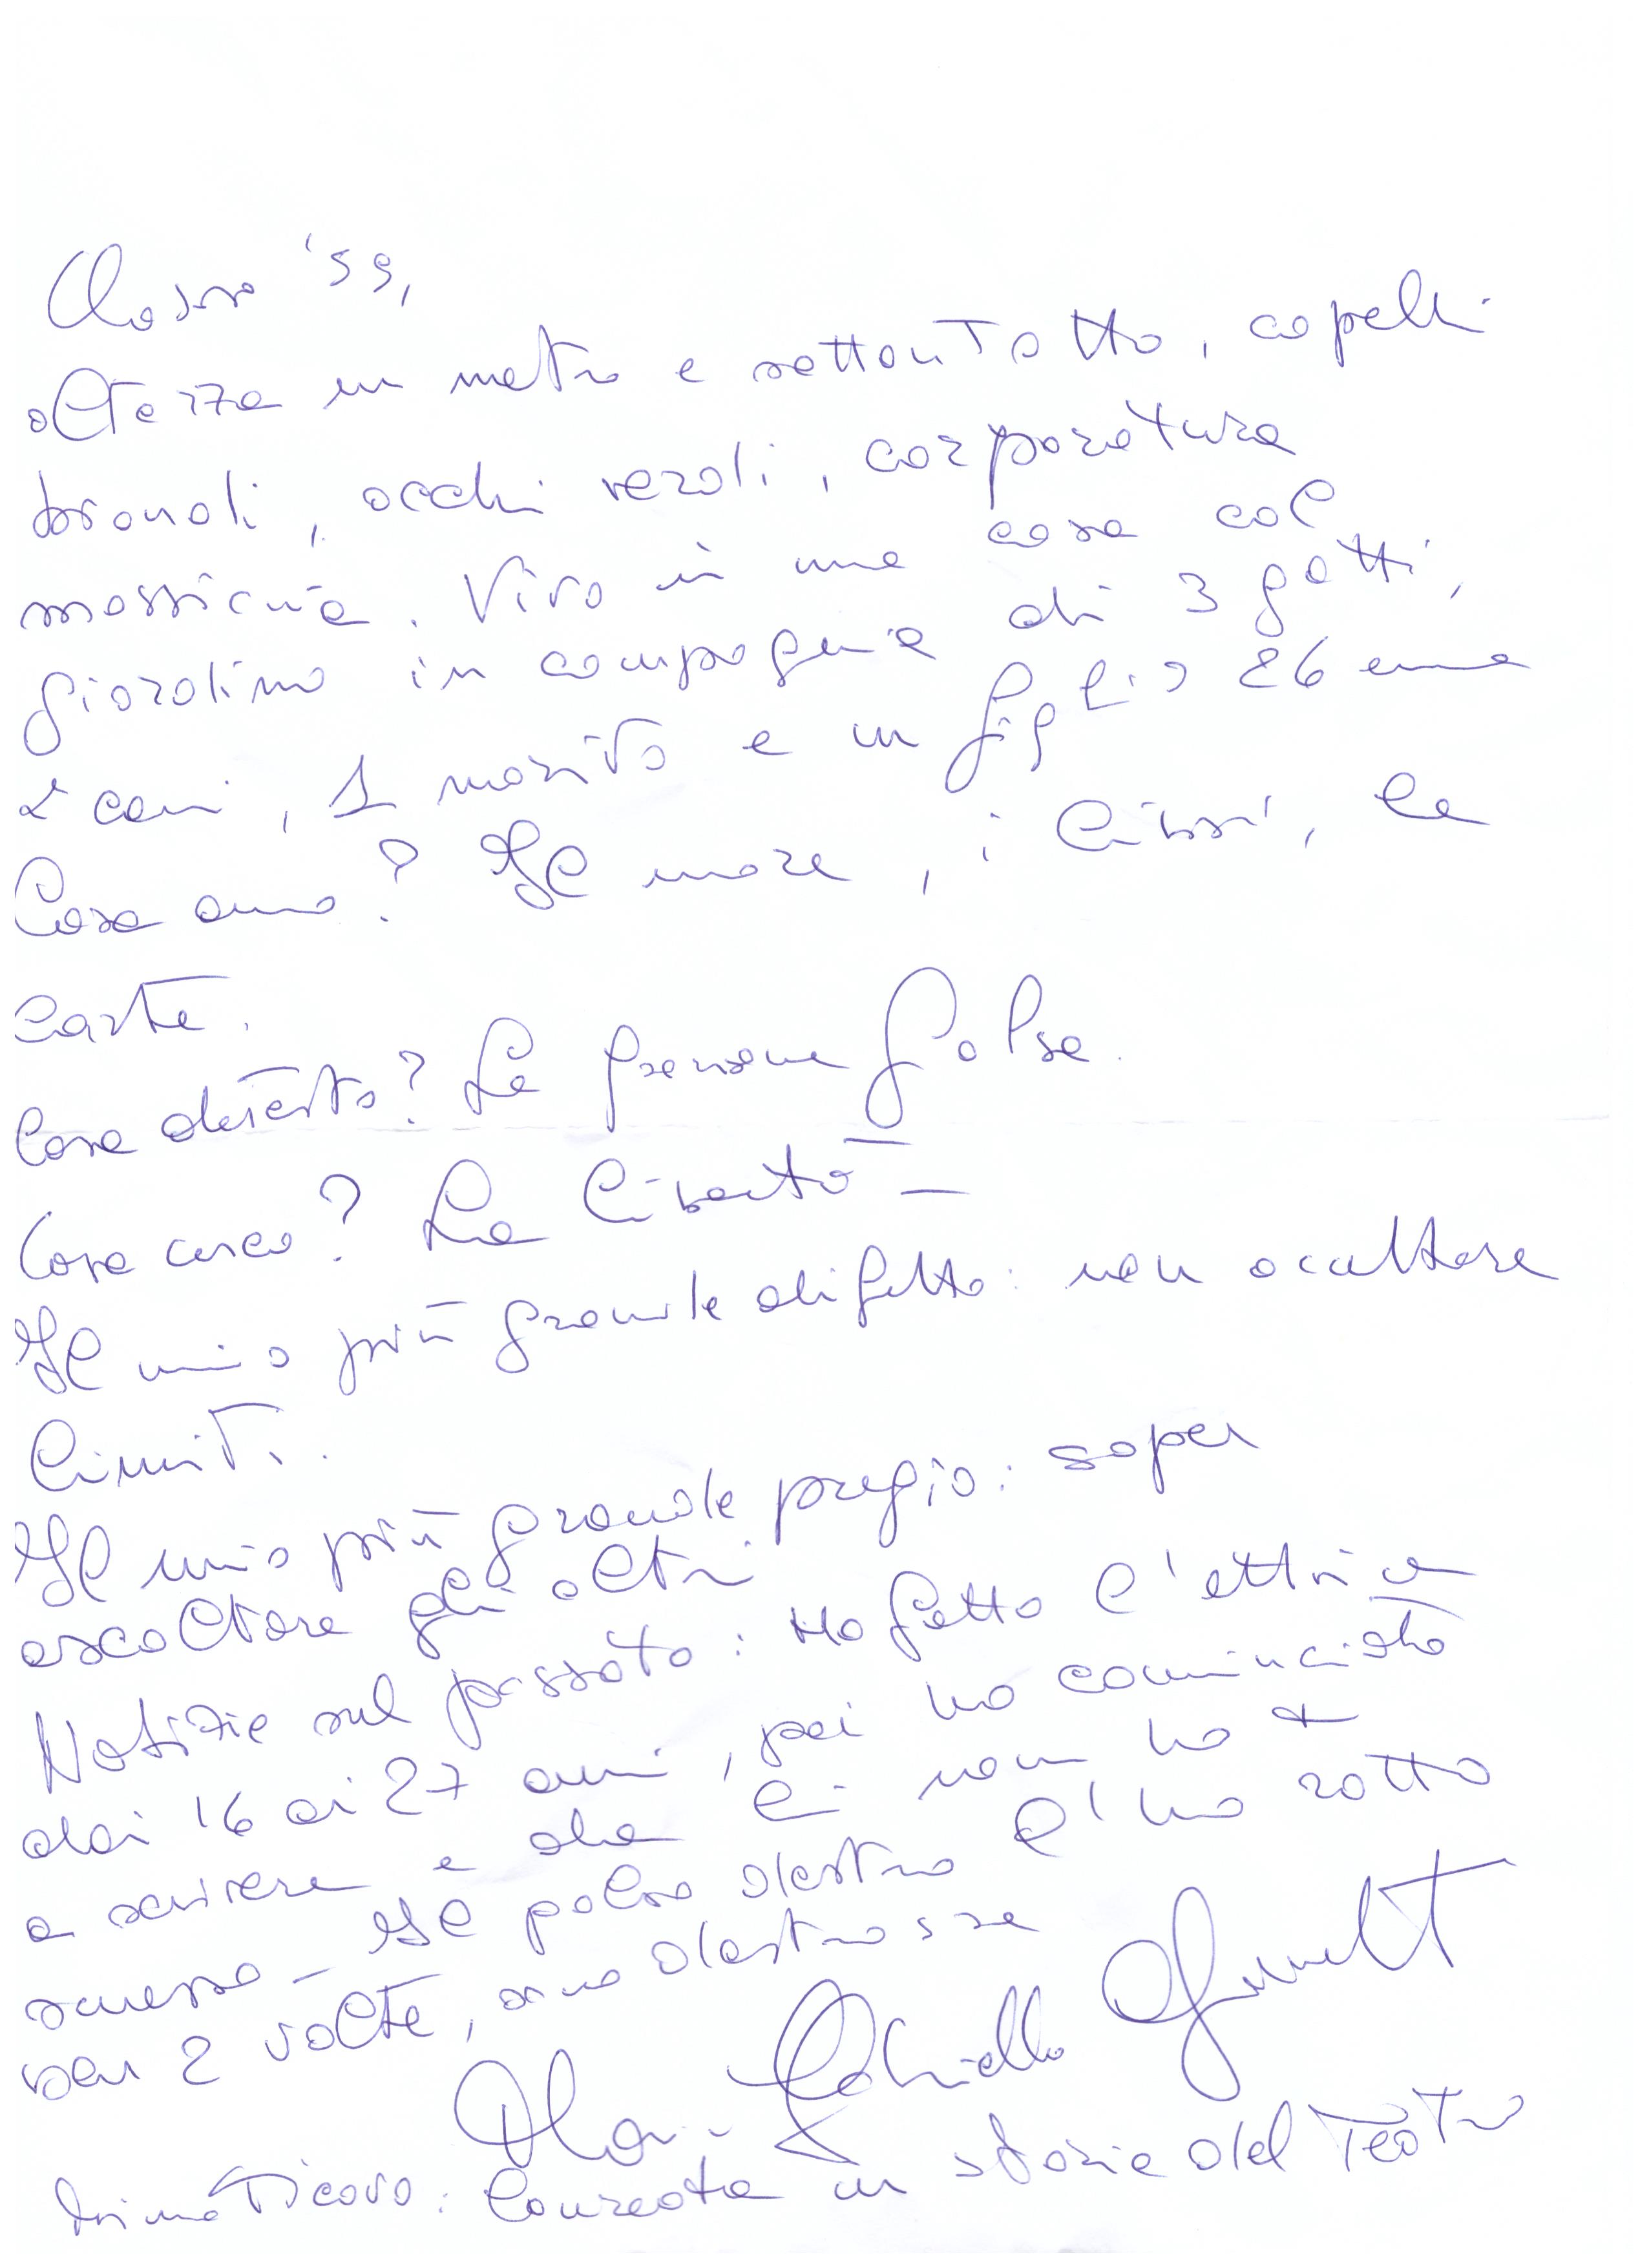 Classe '59,
altezza un metro e settantotto, capelli
castani, occhi verdi, corporatura
massiccia. Vivo in una casa col
giardino in compagnia di 3 gatti,
2 cani, 1 marito e un figlio 26 enne
Cosa amo? Il mare, i libri, le
carte.
Cosa detesto? Le persone false.
Cosa cerco? La libertà -
Il mio più grande difetto: non accettare
limiti.
Il mio più grande pregio: saper
ascoltare gli altri.
Notizie sul passato: Ho fatto l'attrice
dai 16 ai 27 anni, poi ho cominciato
a scrivere e da lì non ho +
smesso - Il polso destro l'ho rotto
ben 2 volte, sono destrorsa
Maria Gabriella
Dimenticavo: laureata in storia del Teatro